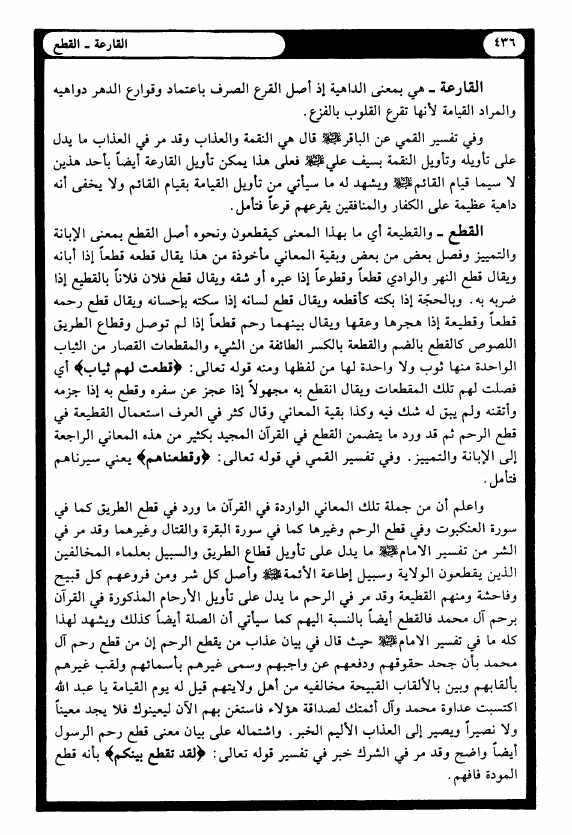 ٤٣٦
القارعة ـ القطع
القارعة ـ هي بمعنى الداهية إذ أصل القرع الصرف باعتماد وقوارع الدهر دواهيه
والمراد القيامة لأنها تقرع القلوب بالفزع.
وفي تفسير القمي عن الباقر ﵇ قال هي النقمة والعذاب وقد مر في العذاب ما يدل
على تأويله وتأويل النقمة بسيف علي ﵇ فعلى هذا يمكن تأويل القارعة أيضاً بأحد هذين
لا سيما قيام القائم ﵇ ويشهد له ما سيأتي من تأويل القيامة بقيام القائم ولا يخفى أنه
داهية عظيمة على الكفار والمنافقين يقرعهم قرعاً فتأمل.
القطع ـ والقطيعة أي ما بهذا المعنى كيقطعون ونحوه أصل القطع بمعنى الإبانة
والتمييز وفصل بعض من بعض وبقية المعاني مأخوذة من هذا يقال قطعه قطعاً إذا أبانه
ويقال قطع النهر والوادي قطعاً وقطوعاً إذا عبره أو شقه ويقال قطع فلان فلاناً بالقطيع إذا
ضربه به. وبالحجّة إذا بكته كأقطعه ويقال قطع لسانه إذا سكته بإحسانه ويقال قطع رحمه
قطعاً وقطيعة إذا هجرها وعقها ويقال بينهما رحم قطعاً إذا لم توصل وقطاع الطريق
اللصوص كالقطع بالضم والقطعة بالكسر الطائفة من الشيء والمقطعات القصار من الثياب
الواحدة منها ثوب ولا واحدة لها من لفظها ومنه قوله تعالى: ﴿قطعت لهم ثياب﴾ أي
فصلت لهم تلك المقطعات ويقال انقطع به مجهولاً إذا عجز عن سفره وقطع به إذا جزمه
وأتقنه ولم يبق له شك فيه وكذا بقية المعاني وقال كثر في العرف استعمال القطيعة في
قطع الرحم ثم قد ورد ما يتضمن القطع في القرآن المجيد بكثير من هذه المعاني الراجعة
إلى الإبانة والتمييز. وفي تفسير القمي في قوله تعالى: ﴿وقطعناهم﴾ يعني سيرناهم
فتأمل.
واعلم أن من جملة تلك المعاني الواردة في القرآن ما ورد في قطع الطريق كما في
سورة العنكبوت وفي قطع الرحم وغيرها كما في سورة البقرة والقتال وغيرهما وقد مر في
الشر من تفسير الامام ﵇ ما يدل على تأويل قطاع الطريق والسبيل بعلماء المخالفين
الذين يقطعون الولاية وسبيل إطاعة الأئمة ﵈ وأصل كل شر ومن فروعهم كل قبيح
وفاحشة ومنهم القطيعة وقد مر في الرحم ما يدل على تأويل الأرحام المذكورة في القرآن
برحم آل محمد فالقطع أيضاً بالنسبة اليهم كما سيأتي أن الصلة أيضاً كذلك ويشهد لهذا
كله ما في تفسير الامام ﵇ حيث قال في بيان عذاب من يقطع الرحم إن من قطع رحم آل
محمد بأن جحد حقوقهم ودفعهم عن واجبهم وسمى غيرهم بأسمائهم ولقب غيرهم
بألقابهم وبين بالألقاب القبيحة مخالفيه من أهل ولايتهم قيل له يوم القيامة يا عبد الله
اكتسبت عداوة محمد وآل أئمتك لصداقة هؤلاء فاستغن بهم الآن ليعينوك فلا يجد معيناً
ولا نصيراً ويصير إلى العذاب الأليم الخبر. واشتماله على بيان معنى قطع رحم الرسول
أيضاً واضح وقد مر في الشرك خبر في تفسير قوله تعالى: ﴿لقد تقطع بينكم﴾ بأنه قطع
المودة فافهم.